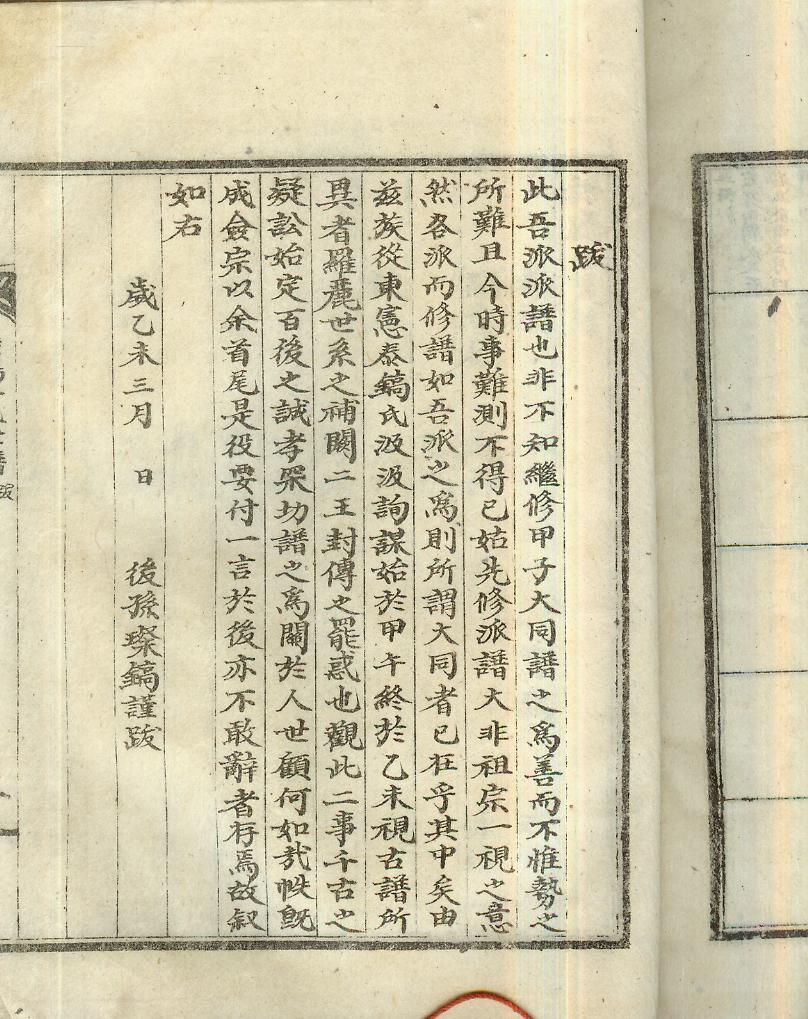 跋
此吾派派譜也非不知繼修甲子大同譜之爲善而不惟勢之
所難且今時事難測不得已姑先修派譜大非祖宗一視之意
然各派而修譜如吾派之爲則所謂大同者已在乎其中矣由
玆族從東憲泰鎬氏汲汲詢謀始於甲午終於乙未視古譜所
異者羅麗世系之補闕二王封傳之罷惑也觀此二事千古之
疑訟始定百後之誠孝采切譜之爲關於人世顧何如哉帙旣
成僉宗以余首尾是役要付一言於後亦不敢辭者存焉故叙
如右
歲乙未三月　日　後孫璨鎬謹跋